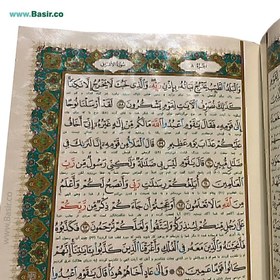 www.Basir.co
وَالْبَلَدُ الطَّيِّبُ يَخْرُجُ نَبَاتُهُ بِإِذْنِ رَبِّهِ وَالَّذِي خَبُثَ لَا يَخْرُجُ إِلَّا نَكِدًا
كَذَٰلِكَ نُصَرِّفُ الْآيَاتِ لِقَوْمٍ يَشْكُرُونَ ٥٨ لَقَدْ أَرْسَلْنَا نُوحًا
إِلَىٰ قَوْمِهِ فَقَالَ يَا قَوْمِ اعْبُدُوا اللَّهَ مَا لَكُمْ مِنْ إِلَٰهٍ غَيْرُهُ إِنِّي أَخَافُ
عَلَيْكُمْ عَذَابَ يَوْمٍ عَظِيمٍ ٥٩ قَالَ الْمَلَأُ مِنْ قَوْمِهِ إِنَّا لَنَرَاكَ فِي
ضَلَالٍ مُبِينٍ ٦٠ قَالَ يَا قَوْمِ لَيْسَ بِي ضَلَالَةٌ وَلَٰكِنِّي رَسُولٌ مِنْ رَبِّ
الْعَالَمِينَ ٦١ أُبَلِّغُكُمْ رِسَالَاتِ رَبِّي وَأَنْصَحُ لَكُمْ وَأَعْلَمُ
مِنَ اللَّهِ مَا لَا تَعْلَمُونَ ٦٢ أَوَعَجِبْتُمْ أَنْ جَاءَكُمْ ذِكْرٌ مِنْ رَبِّكُمْ
عَلَىٰ رَجُلٍ مِنْكُمْ لِيُنْذِرَكُمْ وَلِتَتَّقُوا وَلَعَلَّكُمْ تُرْحَمُونَ ٦٣ فَكَذَّبُوهُ
فَأَنْجَيْنَاهُ وَالَّذِينَ مَعَهُ فِي الْفُلْكِ وَأَغْرَقْنَا الَّذِينَ كَذَّبُوا